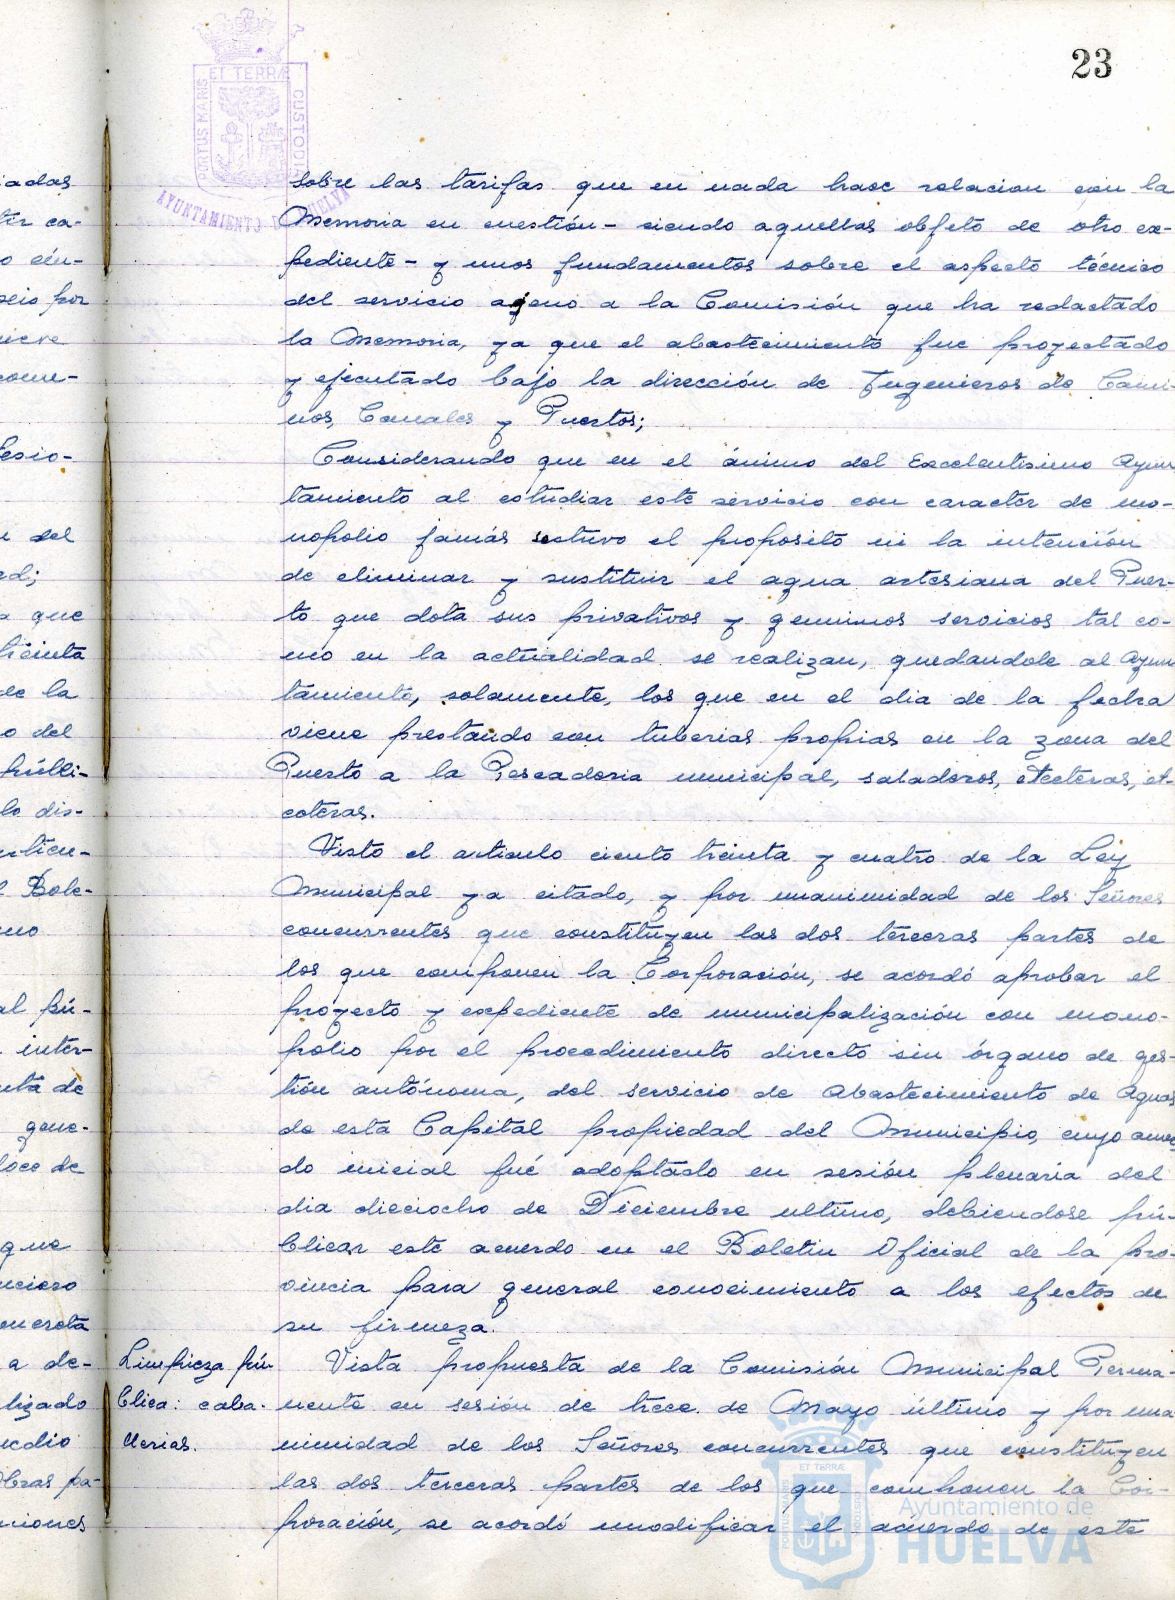 23
ET TERRÆ
PORTUS MARIS
CUSTODIA
AYUNTAMIENTO DE HUELVA
sobre las tarifas que en nada hace relacion con la
Memoria en cuestión - siendo aquellas objeto de otro ex-
pediente - y unos fundamentos sobre el aspecto técnico
del servicio ageno a la Comisión que ha redactado
la Memoria, ya que el abastecimiento fue proyectado
y ejecutado bajo la dirección de Ingenieros de Cami-
nos, Canales y Puertos;
Considerando que en el ánimo del Excelentisimo Ayun
tamiento al estudiar este servicio con caracter de mo-
nopolio jamás estuvo el proposito ni la intención
de eliminar y sustituir el agua artesiana del Puer-
to que dota sus privativos y genuinos servicios tal co-
mo en la actualidad se realizan, quedandole al Ayun
tamiento, solamente, los que en el dia de la fecha
viene prestando con tuberias propias en la zona del
Puerto a la Pescaderia municipal, saladeros, etceteras, et-
ceteras.
Visto el articulo ciento treinta y cuatro de la Ley
Municipal ya citado, y por unanimidad de los Señores
concurrentes que constituyen las dos terceras partes de
los que componen la Corporación, se acordó aprobar el
proyecto y expediente de municipalización con mono-
polio por el procedimiento directo sin órgano de ges-
tión autónoma, del servicio de Abastecimiento de Aguas
de esta Capital propiedad del Municipio, cuyo acuer
do inicial fué adoptado en sesión plenaria del
dia dieciocho de Diciembre ultimo, debiendose pú-
blicar este acuerdo en el Boletin Oficial de la pro-
vincia para general conocimiento a los efectos de
su firmeza.
Limpieza pú-
blica: caba-
llerias.
Vista propuesta de la Comisión Municipal Perma-
nente en sesión de trece de Mayo último y por una
nimidad de los Señores concurrentes que constituyen
las dos terceras partes de los que componen la Cor-
poración, se acordó modificar el acuerdo de este
iadas
ter ca-
o cin-
seis por
nieve
come-
fesio-
del
ed;
a que
treinta
de la
o del
públi-
lo dis-
rticu-
l Bole-
uno
al pú-
inter-
nta de
gene-
doce de
que
nciero
oncreta
a de-
lizado
medio
Obras pa-
niones
Ayuntamiento de
HUELVA